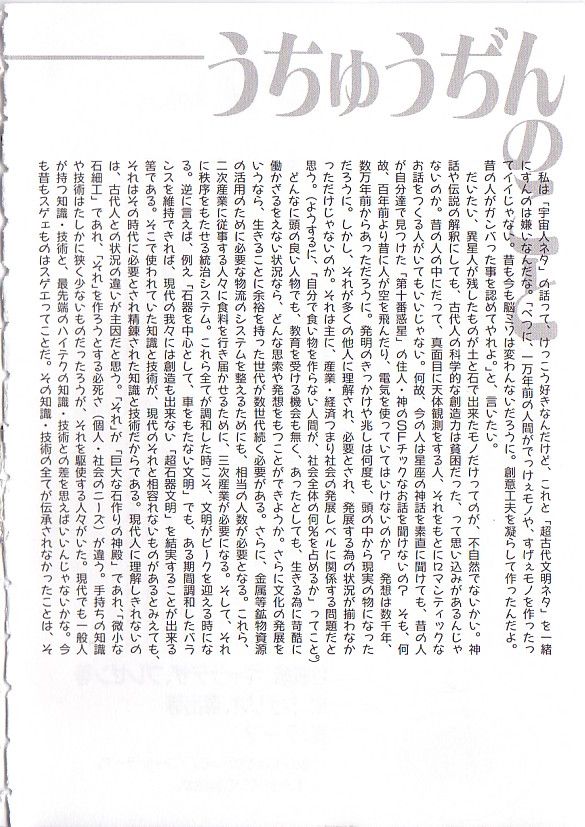 うちゅうぢんの
私は「宇宙人ネタ」の話って、けっこう好きなんだけど、これと「超古代文明ネタ」を一緒
にすんのは嫌いなんだな。「べつに、一万年前の人間がでっけぇモノや、すげぇモノを作ったっ
てイイじゃない。昔も今も脳ミソは変わんないだろうに。創意工夫を凝らして作ったんだよ。
昔の人がガンバった事を認めてやれよ。」と、言いたい。
だいたい、異星人が残したものが土と石で出来たモノだけってのが、不自然でないかい。神
話や伝説の解釈にしても、古代人の科学的な創造力は貧困だった、って思い込みがあるんじゃ
ないのか。昔の人の中にだって、真面目に天体観測をする人、それをもとにロマンティックな
お話をつくる人がいてもいいじゃない。何故、今の人は星座の神話を素直に聞けても、昔の人
が自分達で見つけた「第十番惑星」の住人・神のSFチックなお話を聞けないの？　そも、何
故、百年前より昔に人が空を飛んだり、電気を使っていてはいけないのか？　発想は数千年、
数万年前からあっただろうに。発明のきっかけや兆しは何度も、頭の中から現実の物になった
だろうに。しかし、それが多くの他人に理解され、必要とされ、発展する為の状況が揃わなか
っただけじゃないのか。それは主に、産業・経済つまり社会の発展レベルに関係する問題だと
思う。(ようするに、「自分で食い物を作らない人間が、社会全体の何％を占めるか」ってこと)。
どんなに頭の良い人物でも、教育を受ける機会も無く、あったとしても、生きる為に苛酷に
働かざるをえない状況なら、どんな思索や発想をもつことができようか。さらに文化の発展を
いうなら、生きることに余裕を持った世代が数世代続く必要がある。さらに、金属等鉱物資源
の活用のために必要な物流のシステムを整えるためにも、相当の人数が必要となる。これら、
二次産業に従事する人々に食料を行き届かせるために、三次産業が必要になる。そして、それ
に秩序をもたせる統治システム。これら全てが調和した時こそ、文明がピークを迎える時にな
る。逆に言えば、例え「石器を中心として、車をもたない文明」でも、ある期間調和したバラ
ンスを維持できれば、現代の我々には創造も出来ない「超石器文明」を結実することが出来る
筈である。そこで使われていた知識と技術が、現代のそれと相容れないものがあるとみえても、
それはその時代に必要とされ精錬された知識と技術だからである。現代人に理解しきれないの
は、古代人との状況の違いが主因だと思う。「それ」が「巨大な石作りの神殿」であれ、「微小な
石細工」であれ、「それ」を作ろうとする必死さ（個人・社会のニーズ）が違う。手持ちの知識
や技術はたしかに狭く少ないものだったろうが、それを駆使する人々がいた。現代でも一般人
が持つ知識・技術と、最先端のハイテクの知識・技術との差を思えばいいんじゃないかな。今
も昔もスゲェものはスゲェってことだ。その知識・技術の全てが伝承されなかったことは、そ